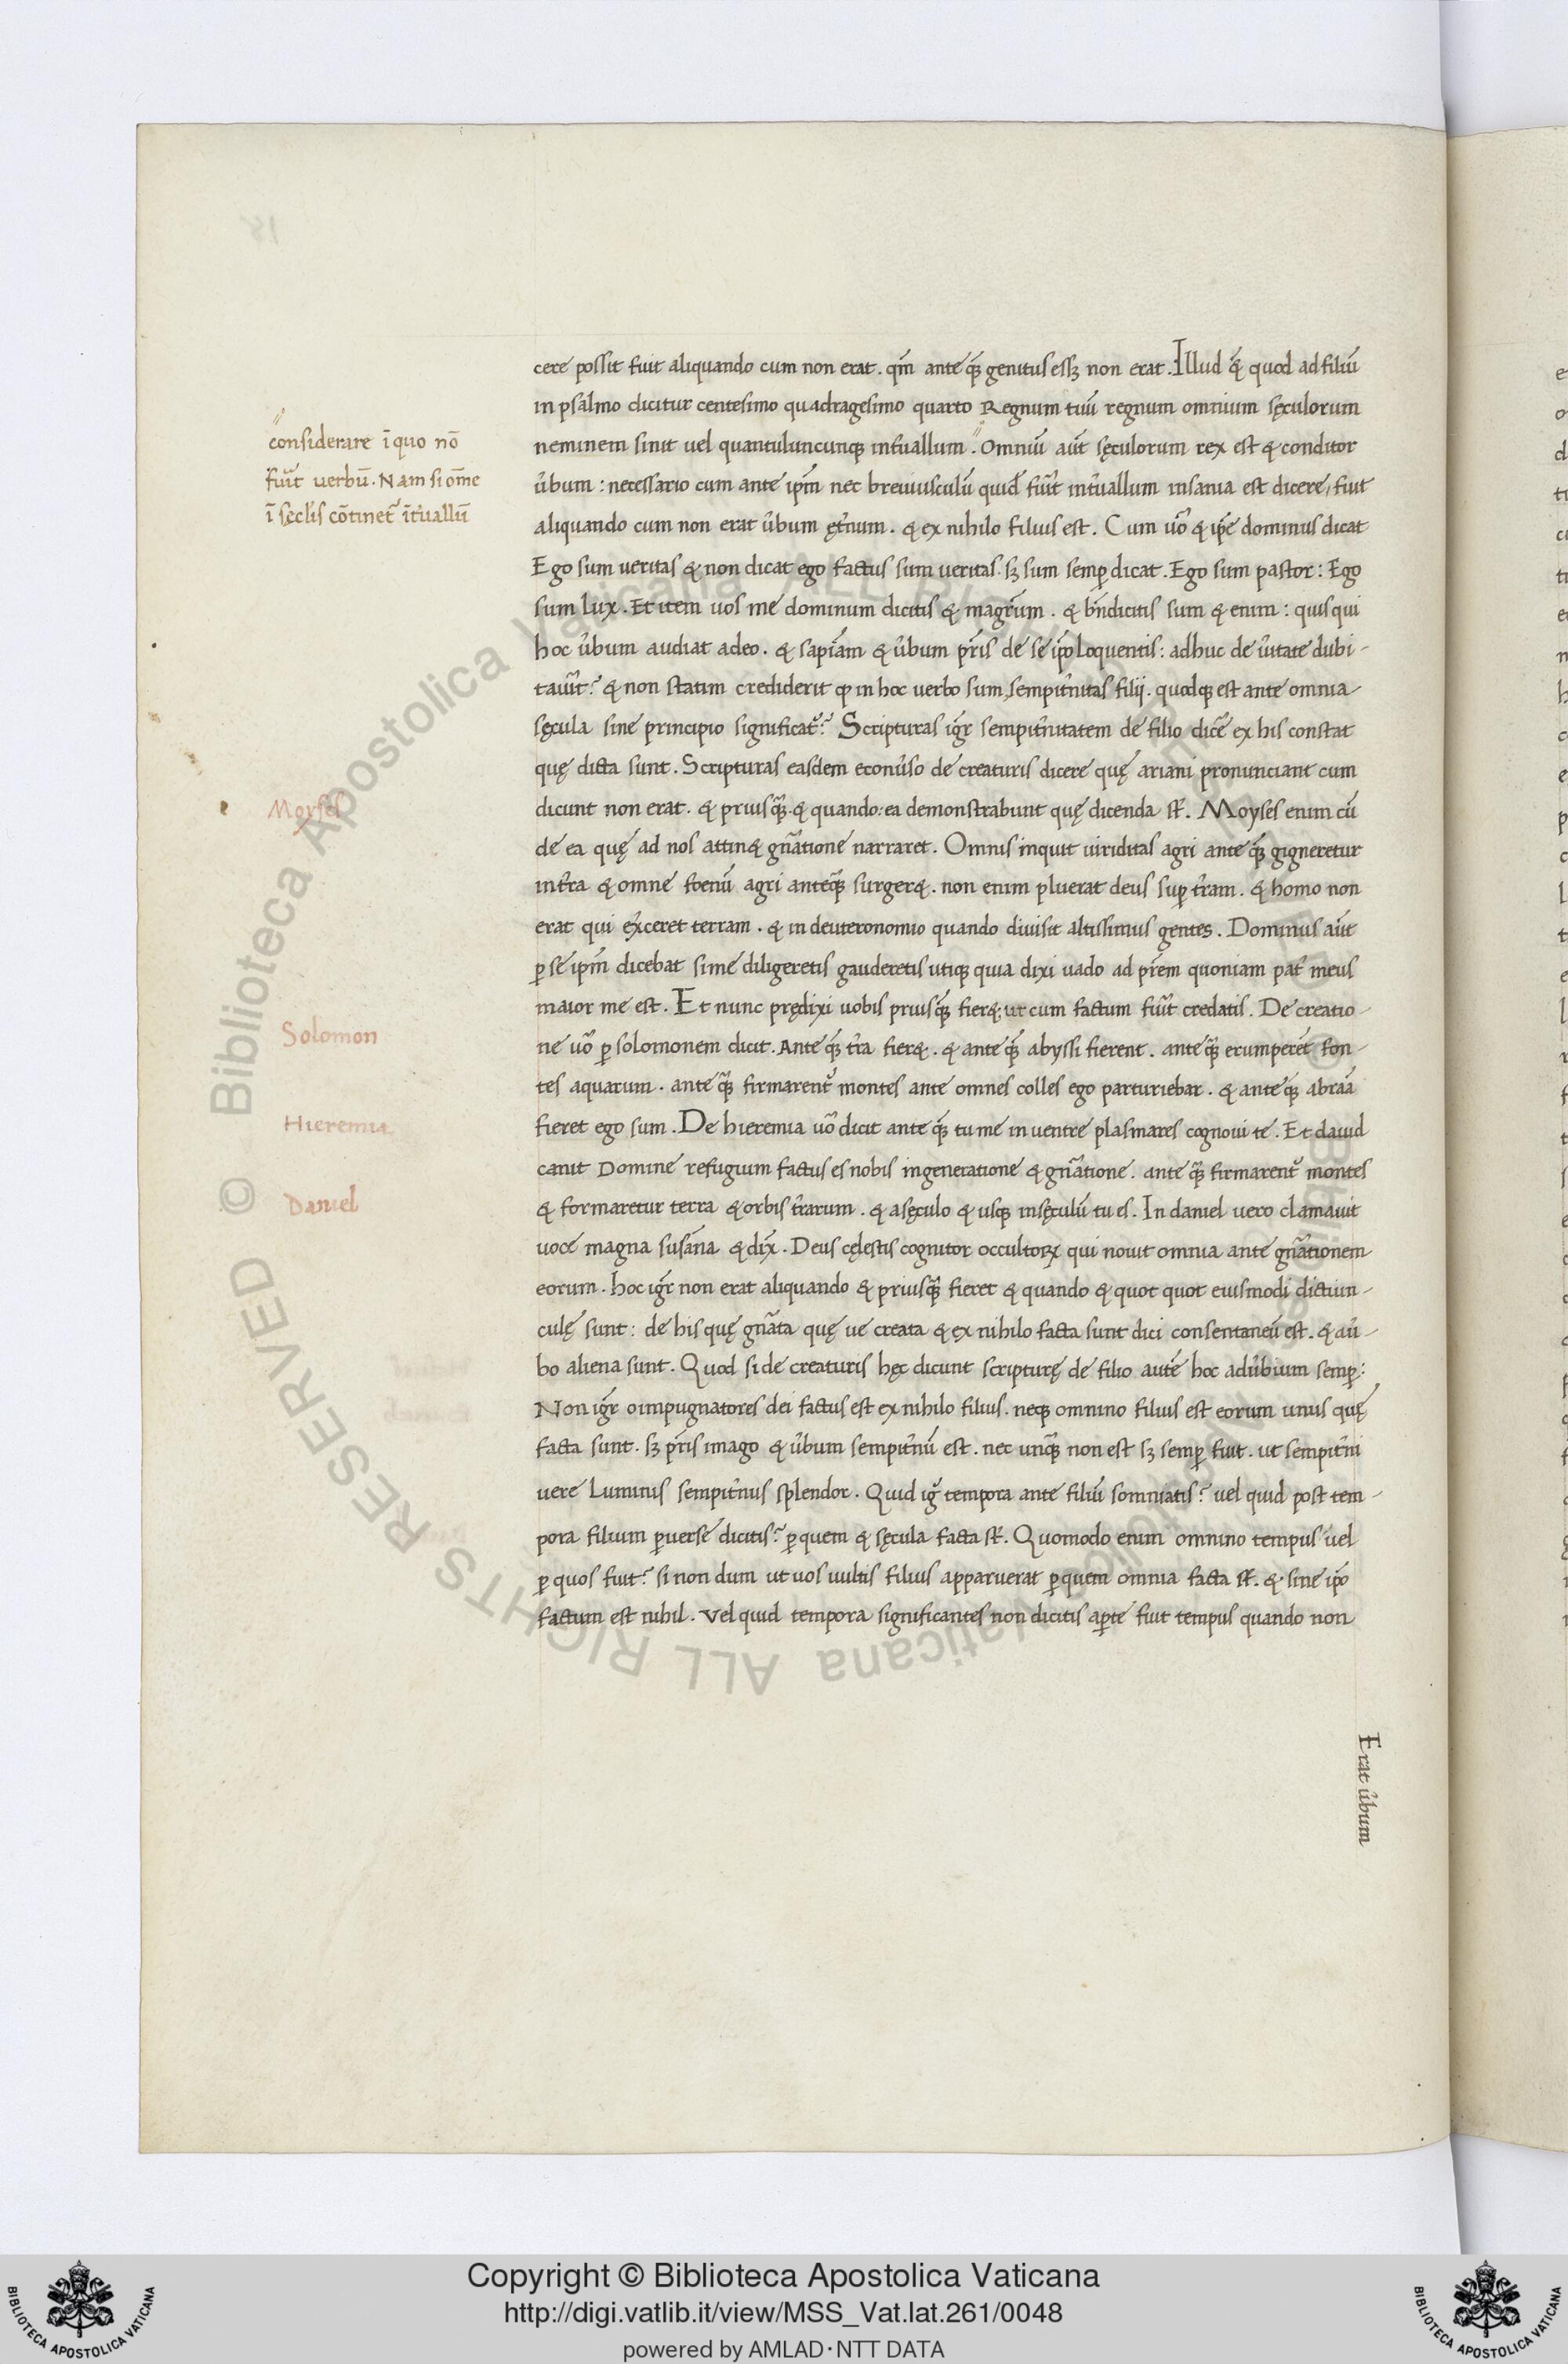 cere possit fuit aliquando cum non erat. qm̄ ante q̄ꝫ genitus essꝫ non erat. Illud q̄ꝫ quod ad filiū
in psalmo dicitur centesimo quadragesimo quarto Regnum tuū regnum omnium sęculorum
neminem sinit uel quantuluncunqꝫ int̄uallum. Omniū aūt sęculorum rex est & conditor
u̇bum : necessario cum ante ip̄m nec breuiusculū quid fuit̄ int̄uallum insania est dicere, fuit
aliquando cum non erat u̇bum ęt̄num. & ex nihilo filius est. Cum uō & ip̄e dominus dicat
Ego sum ueritas & non dicat ego factus sum ueritas. sꝫ sum semꝑ dicat. Ego sum pastor : Ego
sum lux. Et item uos me dominum dicitis & magr̄um. & bn̄dicitis sum & enim : quis qui
hoc u̇bum audiat adeo. & sapīam & u̇bum pr̄is de se ip̄o loquentis : adhuc de u̇itate dubi-
tauit̄? & non statim crediderit ꝙ in hoc uerbo sum, sempit̄nitas filij. quodqꝫ est ante omnia
sęcula sine principio significat᷑? Scripturas igr̄ sempit̄nitatem de filio dic̄e ex his constat
quę dicta sunt. Scripturas easdem econu̇so de creaturis dicere quę ariani pronunciant cum
dicunt non erat. & priusq̄ꝫ. & quando. ea demonstrabunt quę dicenda st̄. Moyses enim cū
de ea quę ad nos attin& gn̄atione narraret. Omnis inquit uiriditas agri ante q̄ꝫ gigneretur
in t̄ra & omne foenū agri anteq̄ꝫ surger&. non enim pluerat deus suꝑ t̄ram. & homo non
erat qui ex̄ceret terram. & in deuteronomio quando diuisit altissimus gentes. Dominus aūt
ꝑ se ip̄m dicebat si me diligeretis gauderetis utiqꝫ quia dixi uado ad pr̄em quoniam pat̄ meus
maior me est. Et nunc prędixi uobis priusq̄ꝫ fier&, ut cum factum fuit̄ credatis. De creatio-
ne uō ꝑ solomonem dicit. Ante q̄ꝫ t̄ra fier&. & ante q̄ꝫ abyssi fierent. ante q̄ꝫ erumperēt fon-
tes aquarum. ante q̄ꝫ firmarent᷑ montes ante omnes colles ego parturiebar. & ante q̄ꝫ abraā
fieret ego sum. De hieremia uō dicit ante q̄ꝫ tu me in uentre plasmares cognoui te. Et dauid
canit Domine refugium factus es nobis in generatione & gn̄atione. ante q̄ꝫ firmarent᷑ montes
& formaretur terra & orbis t̄rarum. & a sęculo & usqꝫ in sęculū tu es. In daniel uero clamauit
uoce magna susāna & dix̄. Deus cęlestis cognitor occultoꝝ qui nouit omnia ante gn̄ationem
eorum. hoc igr̄ non erat aliquando & priusq̄ꝫ fieret & quando & quot quot eiusmodi dictiun-
culę sunt : de his quę gn̄ata quę ue creata & ex nihilo facta sunt dici consentaneū est. & a u̇-
bo aliena sunt. Quod si de creaturis hęc dicunt scripturę de filio autē hoc adu̇bium semꝑ :
Non igr̄ o impugnatores dei factus est ex nihilo filius. neqꝫ omnino filius est eorum unus quę
facta sunt. sꝫ pr̄is imago & u̇bum sempit̄nū est. nec unq̄ꝫ non est sꝫ semꝑ fuit. ut sempit̄ni
uere luminis sempit̄nus splendor. Quid ig᷑ tempora ante filiū somniatis? uel quid post tem-
pora filium ꝑuerse dicitis? ꝑ quem & sęcula facta st̄. Quomodo enim omnino tempus uel
ꝑ quos fuit? si non dum ut uos uultis filius apparuerat ꝑ quem omnia facta st̄. & sine ip̄o
factum est nihil. Vel quid tempora significantes non dicitis aꝑte fuit tempus quando non
Erat u̇bum
considerare ī quo nō
fuit̄ uerbū. Nam si om̄e
ī sęcl̄is cōtinet᷑ īt̄uallū
Moyses
Solomon
Hieremia
Daniel
© Biblioteca Apostolica Vaticana ALL RIGHTS RESERVED
Copyright © Biblioteca Apostolica Vaticana
http://digi.vatlib.it/view/MSS_Vat.lat.261/0048
powered by AMLAD·NTT DATA
BIBLIOTECA APOSTOLICA VATICANA
BIBLIOTECA APOSTOLICA VATICANA